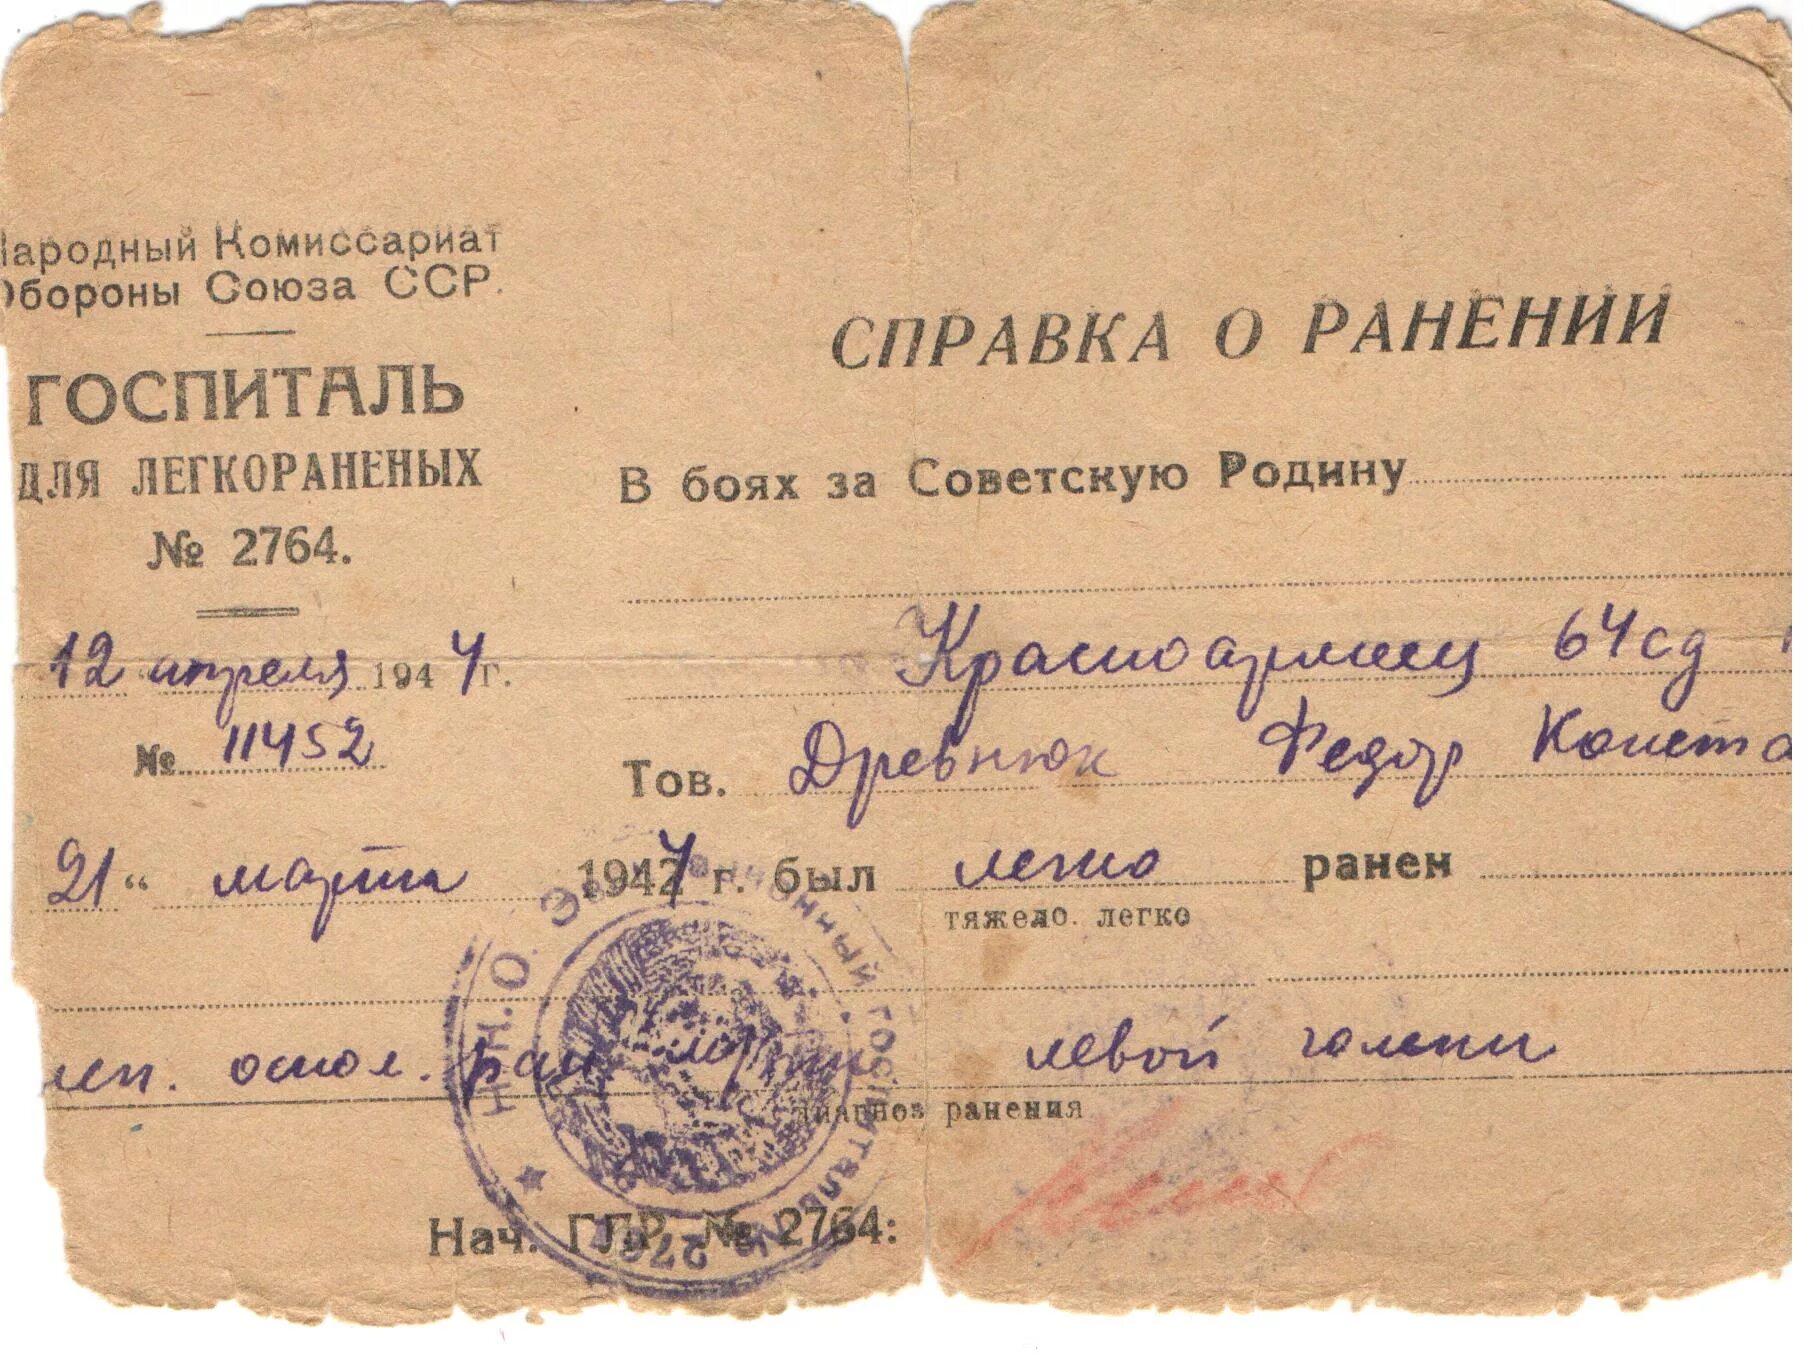 Народный Комиссариат
Обороны Союза ССР.
ГОСПИТАЛЬ
ДЛЯ ЛЕГКОРАНЕНЫХ
№ 2764.
12 апреля 1944 г.
№ 11452
СПРАВКА О РАНЕНИИ
В боях за Советскую Родину
Красноармеец 64 сд
Тов. Древнюк Федор Конста
21 " марта 1944 г. был легко ранен
тяжело. легко
слеп. оскол. ран левой голени
диагноз ранения
Нач. ГЛР № 2764:
Н.К.О. Эвакуационный госпиталь № 2764